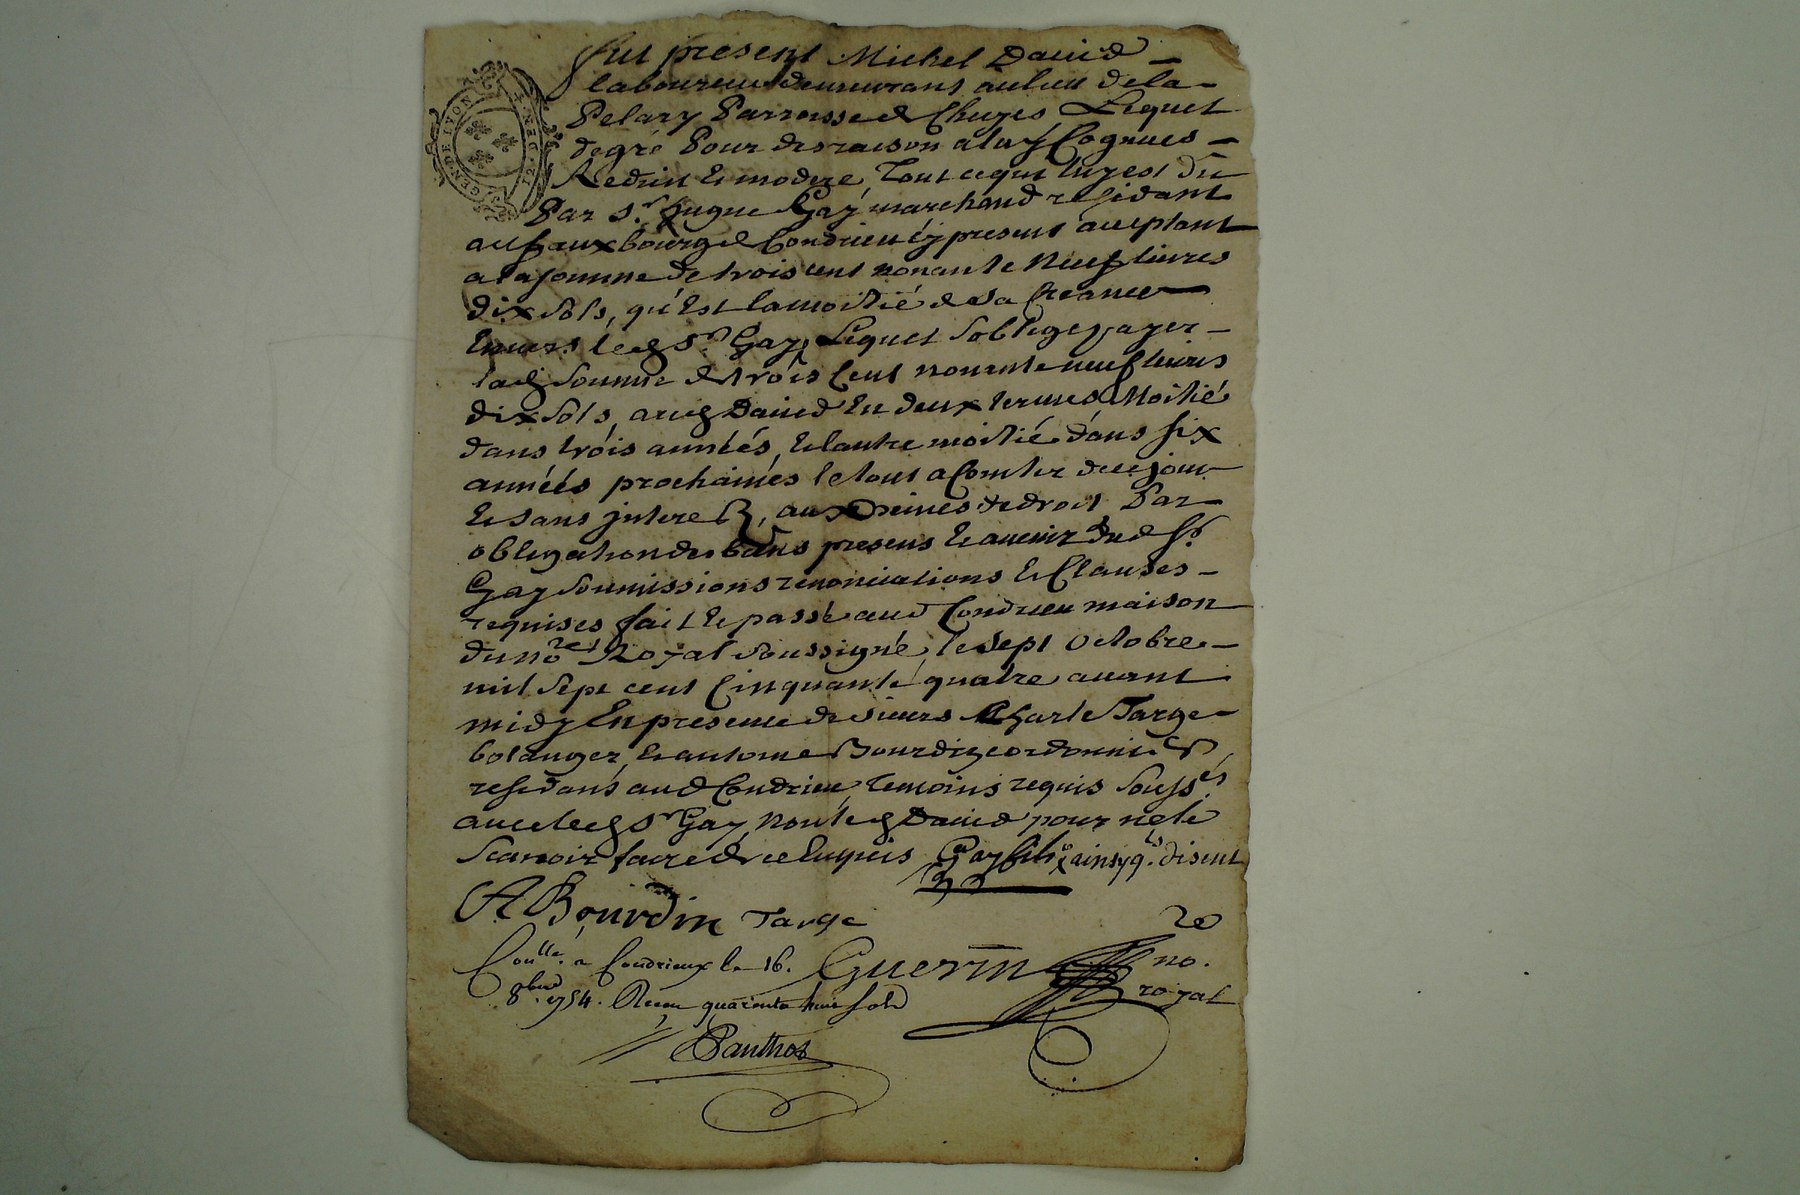 fut present Michel David
laboureur demeurant au lieu de la
Pelary Parroisse de Chuyes, Lequel
de gré Pour des raison a luy Cognues
Reduit et modere, Tout ce qui luy est du
Par Sr. hugue Gay marchand residant
au faux bourg de Condrieu éy present aceptant
a la somme de trois cent nonante neuf livres
dix sols, qu'est la moitié de sa Creance
Envers led Sr. Gay, Lequel soblige payer
lad somme de trois Cent nonante neuf livres
dix sols, aud David En deux termes Moitié
dans trois années, et lautre moitié dans six
années prochaines le tout a Comter de ce jour
et sans jnterest, aux peines de droit Par
obligation des biens presens et avenir dud Sr.
Gay soumissions renonciations et Clauses
requises fait et passé aud Condrieu maison
du nore Royal soussigné, le sept octobre
mil sept cent Cinquante quatre avant
midy En presence de sieurs Charle Targe
bolanger, et antoine Bourdin cordonnier,
residans aud Condrieu, temoins requis soussés
avec led Sr Gay, non led David pour ne le
scavoir faire de ce enquis Gay fils ainsy qls disent
A Bourdin Targe
Conllé. a Condrieux le 16. Guerin no. re
8bre. 1754. Reçeu quarente huit sols royal
Panthot
GEN DE LYON